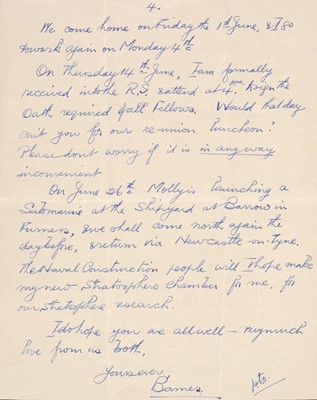 4.
We come home on Friday the 1st June, & I go
to work again on Monday 4th
On Thursday 14th June, I am formally
received into the R.S. & attend at 4.pm. to sign the
Oath required of all Fellows. Would that day
suit you for our re-union luncheon?
Please don't worry if it is in any way
inconvenient
On June 26th Molly is launching a
Submarine at the Shipyard at Barrow in
Furness, & we shall come north again the
day before, & return via Newcastle-on-Tyne.
The Naval Construction people will I hope make
my new Stratosphere chamber for me, for
our stratosphere research.
I do hope you are all well - very much
love from us both,
Yours ever
Barnes.
pto.